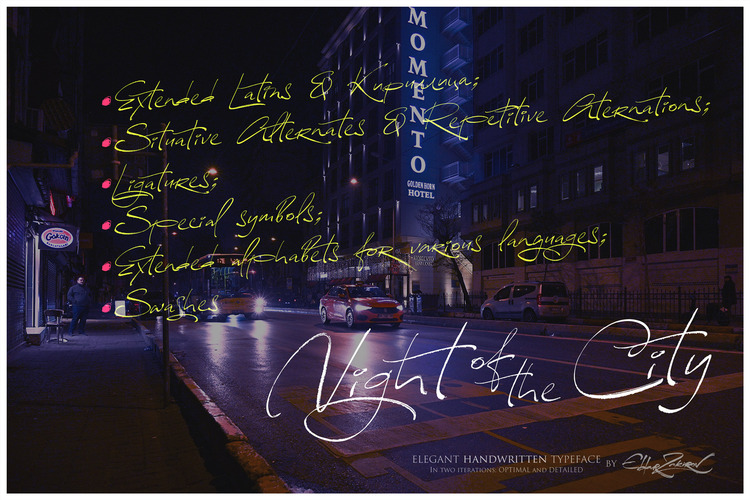 MOMENTO
GOLDEN HORN
HOTEL
Extended Latins & Кириллица;
Situative Alternates & Repetitive Aternations;
Ligatures;
Special symbols;
Extended alphabets for various languages;
Swashes
Gakoin
Night of the City
ELEGANT HANDWRITTEN TYPEFACE BY
IN TWO ITERATIONS, OPTIMAL AND DETAILED